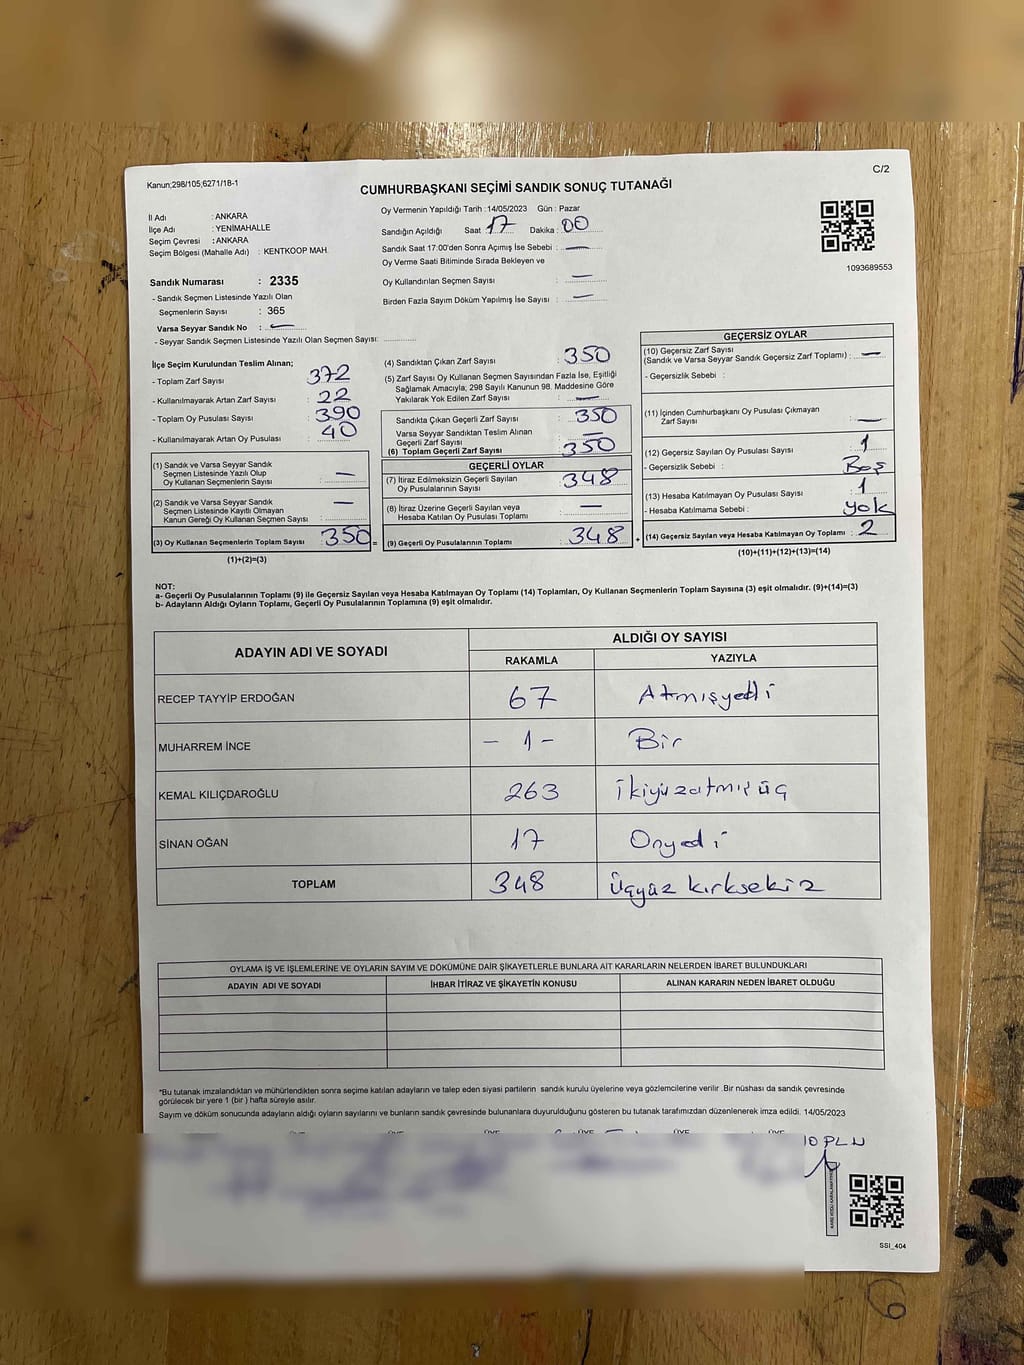 C/2
Kanun;298/105;6271/18-1
CUMHURBAŞKANI SEÇİMİ SANDIK SONUÇ TUTANAĞI
İl Adı : ANKARA
İlçe Adı : YENİMAHALLE
Seçim Çevresi : ANKARA
Seçim Bölgesi (Mahalle Adı) : KENTKOOP MAH.
Oy Vermenin Yapıldığı Tarih :14/05/2023 Gün : Pazar
Sandığın Açıldığı Saat 17 Dakika : 00
Sandık Saat 17:00'den Sonra Açımış İse Sebebi : —
Oy Verme Saati Bitiminde Sırada Bekleyen ve
Oy Kullandırılan Seçmen Sayısı : —
Birden Fazla Sayım Döküm Yapılmış İse Sayısı : —
1093689553
Sandık Numarası : 2335
- Sandık Seçmen Listesinde Yazılı Olan
Seçmenlerin Sayısı : 365
Varsa Seyyar Sandık No : —
- Seyyar Sandık Seçmen Listesinde Yazılı Olan Seçmen Sayısı: ..............
İlçe Seçim Kurulundan Teslim Alınan;
- Toplam Zarf Sayısı : 372
- Kullanılmayarak Artan Zarf Sayısı : 22
- Toplam Oy Pusulası Sayısı : 390
- Kullanılmayarak Artan Oy Pusulası : 40
(1) Sandık ve Varsa Seyyar Sandık
Seçmen Listesinde Yazılı Olup
Oy Kullanan Seçmenlerin Sayısı : —
(2) Sandık ve Varsa Seyyar Sandık
Seçmen Listesinde Kayıtlı Olmayan
Kanun Gereği Oy Kullanan Seçmen Sayısı : —
(3) Oy Kullanan Seçmenlerin Toplam Sayısı : 350 =
(1)+(2)=(3)
(4) Sandıktan Çıkan Zarf Sayısı : 350
(5) Zarf Sayısı Oy Kullanan Seçmen Sayısından Fazla İse, Eşitliği
Sağlamak Amacıyla; 298 Sayılı Kanunun 98. Maddesine Göre
Yakılarak Yok Edilen Zarf Sayısı : —
Sandıkta Çıkan Geçerli Zarf Sayısı : 350
Varsa Seyyar Sandıktan Teslim Alınan
Geçerli Zarf Sayısı : —
(6) Toplam Geçerli Zarf Sayısı : 350
GEÇERLİ OYLAR
(7) İtiraz Edilmeksizin Geçerli Sayılan
Oy Pusulalarının Sayısı : 348
(8) İtiraz Üzerine Geçerli Sayılan veya
Hesaba Katılan Oy Pusulası Toplamı : —
(9) Geçerli Oy Pusulalarının Toplamı : 348 +
GEÇERSİZ OYLAR
(10) Geçersiz Zarf Sayısı
(Sandık ve Varsa Seyyar Sandık Geçersiz Zarf Toplamı) : —
- Geçersizlik Sebebi :
(11) İçinden Cumhurbaşkanı Oy Pusulası Çıkmayan
Zarf Sayısı : —
(12) Geçersiz Sayılan Oy Pusulası Sayısı : 1
- Geçersizlik Sebebi : Boş
(13) Hesaba Katılmayan Oy Pusulası Sayısı : 1
- Hesaba Katılmama Sebebi : yok
(14) Geçersiz Sayılan veya Hesaba Katılmayan Oy Toplamı : 2
(10)+(11)+(12)+(13)=(14)
NOT:
a- Geçerli Oy Pusulalarının Toplamı (9) ile Geçersiz Sayılan veya Hesaba Katılmayan Oy Toplamı (14) Toplamları, Oy Kullanan Seçmenlerin Toplam Sayısına (3) eşit olmalıdır. (9)+(14)=(3)
b- Adayların Aldığı Oyların Toplamı, Geçerli Oy Pusulalarının Toplamına (9) eşit olmalıdır.
ADAYIN ADI VE SOYADI
ALDIĞI OY SAYISI
RAKAMLA YAZIYLA
RECEP TAYYİP ERDOĞAN 67 Atmışyedi
MUHARREM İNCE – 1 – Bir
KEMAL KILIÇDAROĞLU 263 ikiyüzatmışüç
SİNAN OĞAN 17 Onyedi
TOPLAM 348 Üçyüz kırksekiz
OYLAMA İŞ VE İŞLEMLERİNE VE OYLARIN SAYIM VE DÖKÜMÜNE DAİR ŞİKAYETLERLE BUNLARA AİT KARARLARIN NELERDEN İBARET BULUNDUKLARI
ADAYIN ADI VE SOYADI İHBAR İTİRAZ VE ŞİKAYETİN KONUSU ALINAN KARARIN NEDEN İBARET OLDUĞU
*Bu tutanak imzalandıktan ve mühürlendikten sonra seçime katılan adayların ve talep eden siyasi partilerin sandık kurulu üyelerine veya gözlemcilerine verilir .Bir nüshası da sandık çevresinde
görülecek bir yere 1 (bir ) hafta süreyle asılır.
Sayım ve döküm sonucunda adayların aldığı oyların sayılarını ve bunların sandık çevresinde bulunanlara duyurulduğunu gösteren bu tutanak tarafımızdan düzenlenerek imza edildi. 14/05/2023
SSI_404